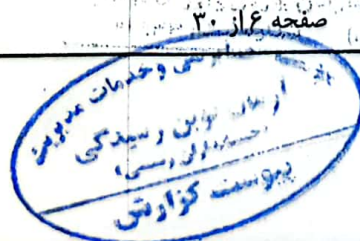 صفحه ۶ از ۳۰
و خدمات مدیریت
آرمان نوین رسیدگی
(حسابداران رسمی)
پیوست گزارش